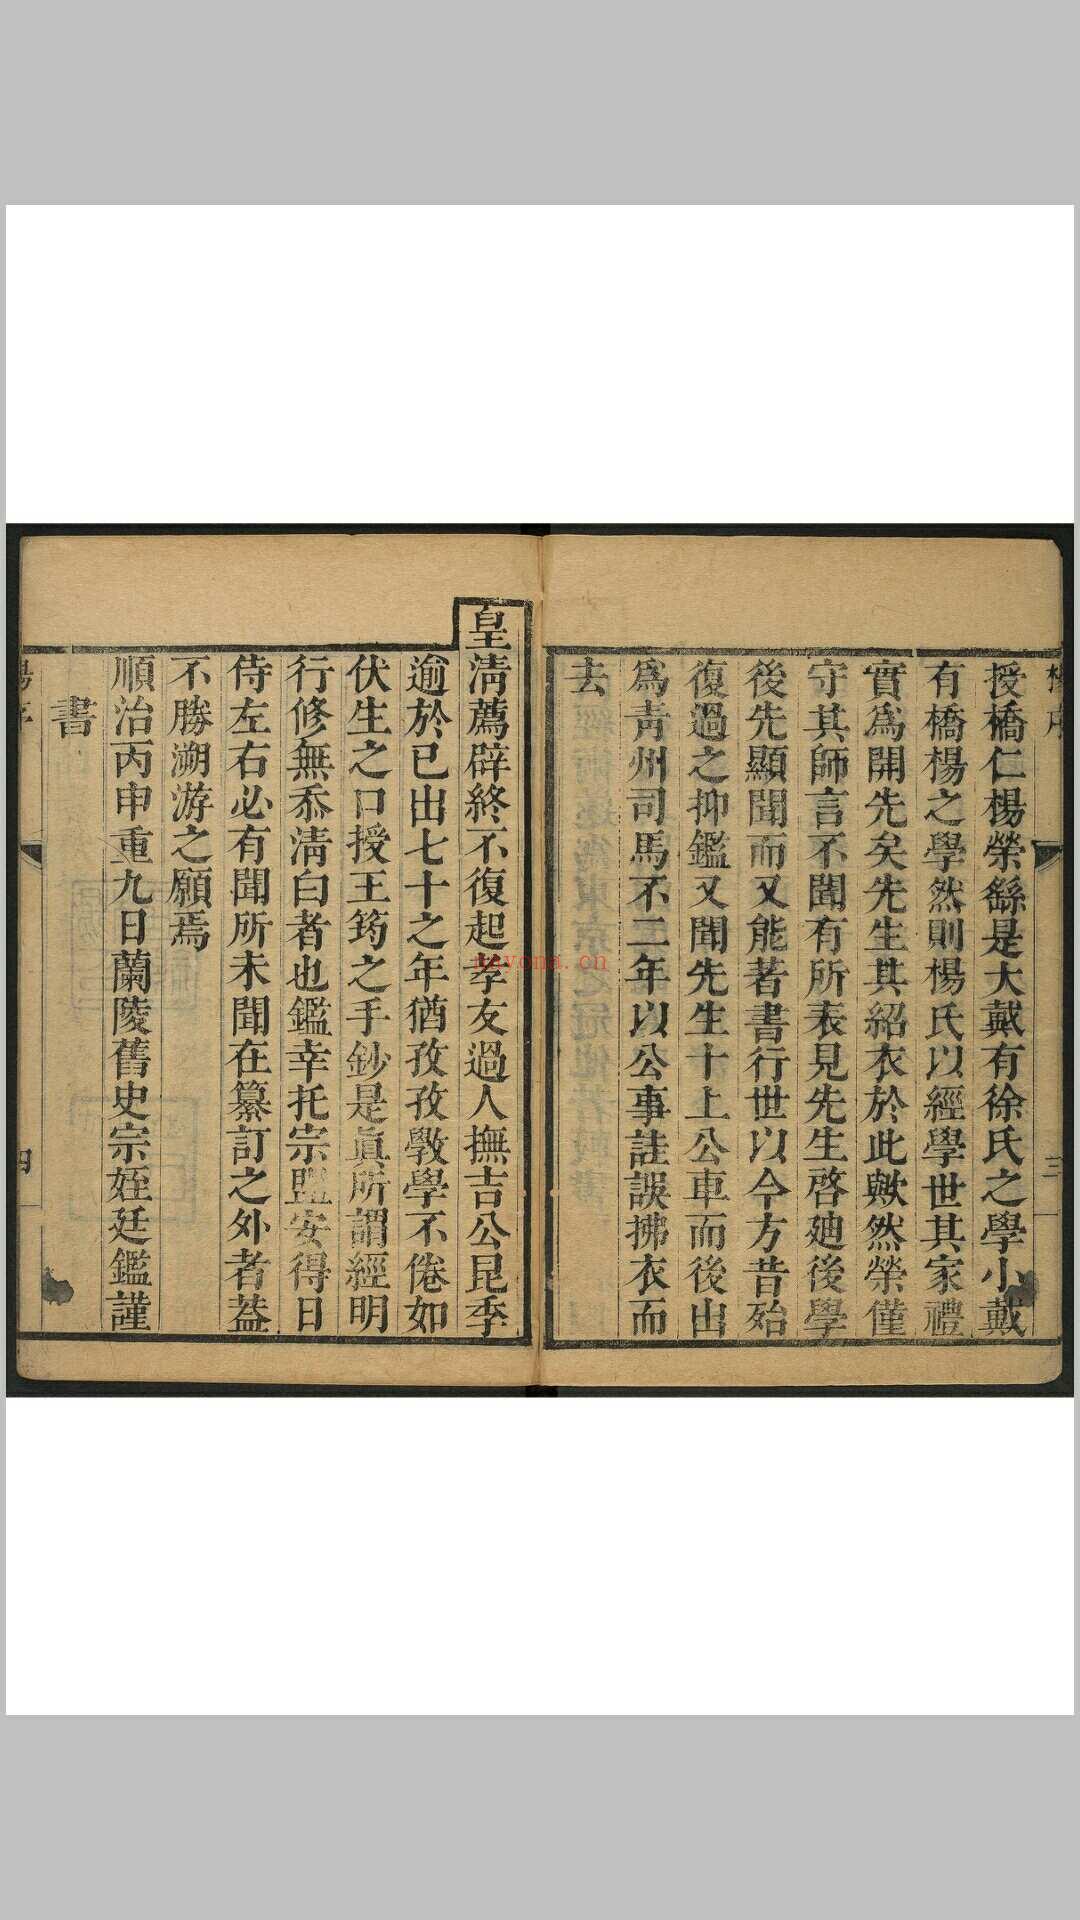 授橋仁楊榮繇是大戴有徐氏之學小戴
有橋楊之學然則楊氏以經學世其家禮
實爲開先矣先生其紹衣於此歟然榮僅
守其師言不聞有所表見先生啓廸後學
後先顯聞而又能著書行世以今方昔殆
復過之抑鑑又聞先生十上公車而後出
爲青州司馬不二年以公事詿誤拂衣而
去
皇清薦辟終不復起孝友過人撫吉公昆季
逾於已出七十之年猶孜孜斆學不倦如
伏生之口授王筠之手鈔是眞所謂經明
行修無忝清白者也鑑幸托宗盟安得日
侍左右必有聞所未聞在纂訂之外者葢
不勝溯游之願焉
順治丙申重九日蘭陵舊史宗姪廷鑑謹
書
三
四
nayona.cn